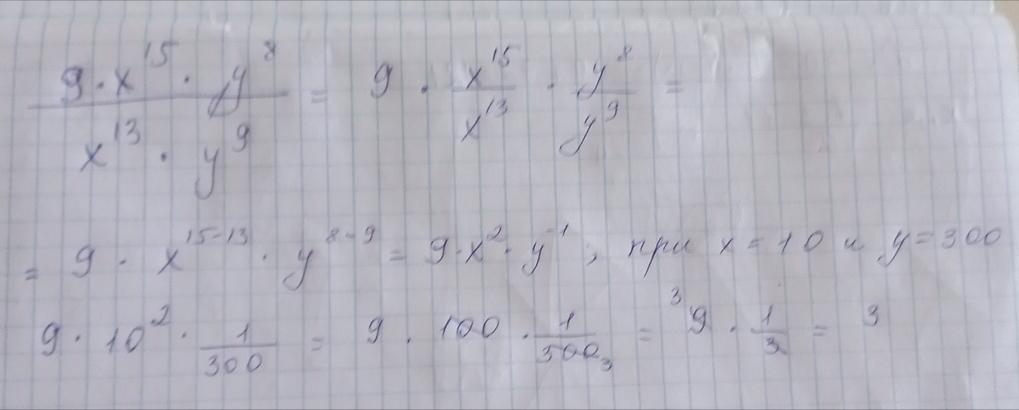 9·x¹⁵·y⁸/x¹³·y⁹ = 9 · x¹⁵/x¹³ · y⁸/y⁹ =
= 9 · x¹⁵⁻¹³ · y⁸⁻⁹ = 9·x²·y⁻¹; при x=10 и y=300
9·10²·1/300 = 9·100·1/300₃ = ³9·1/3 = 3